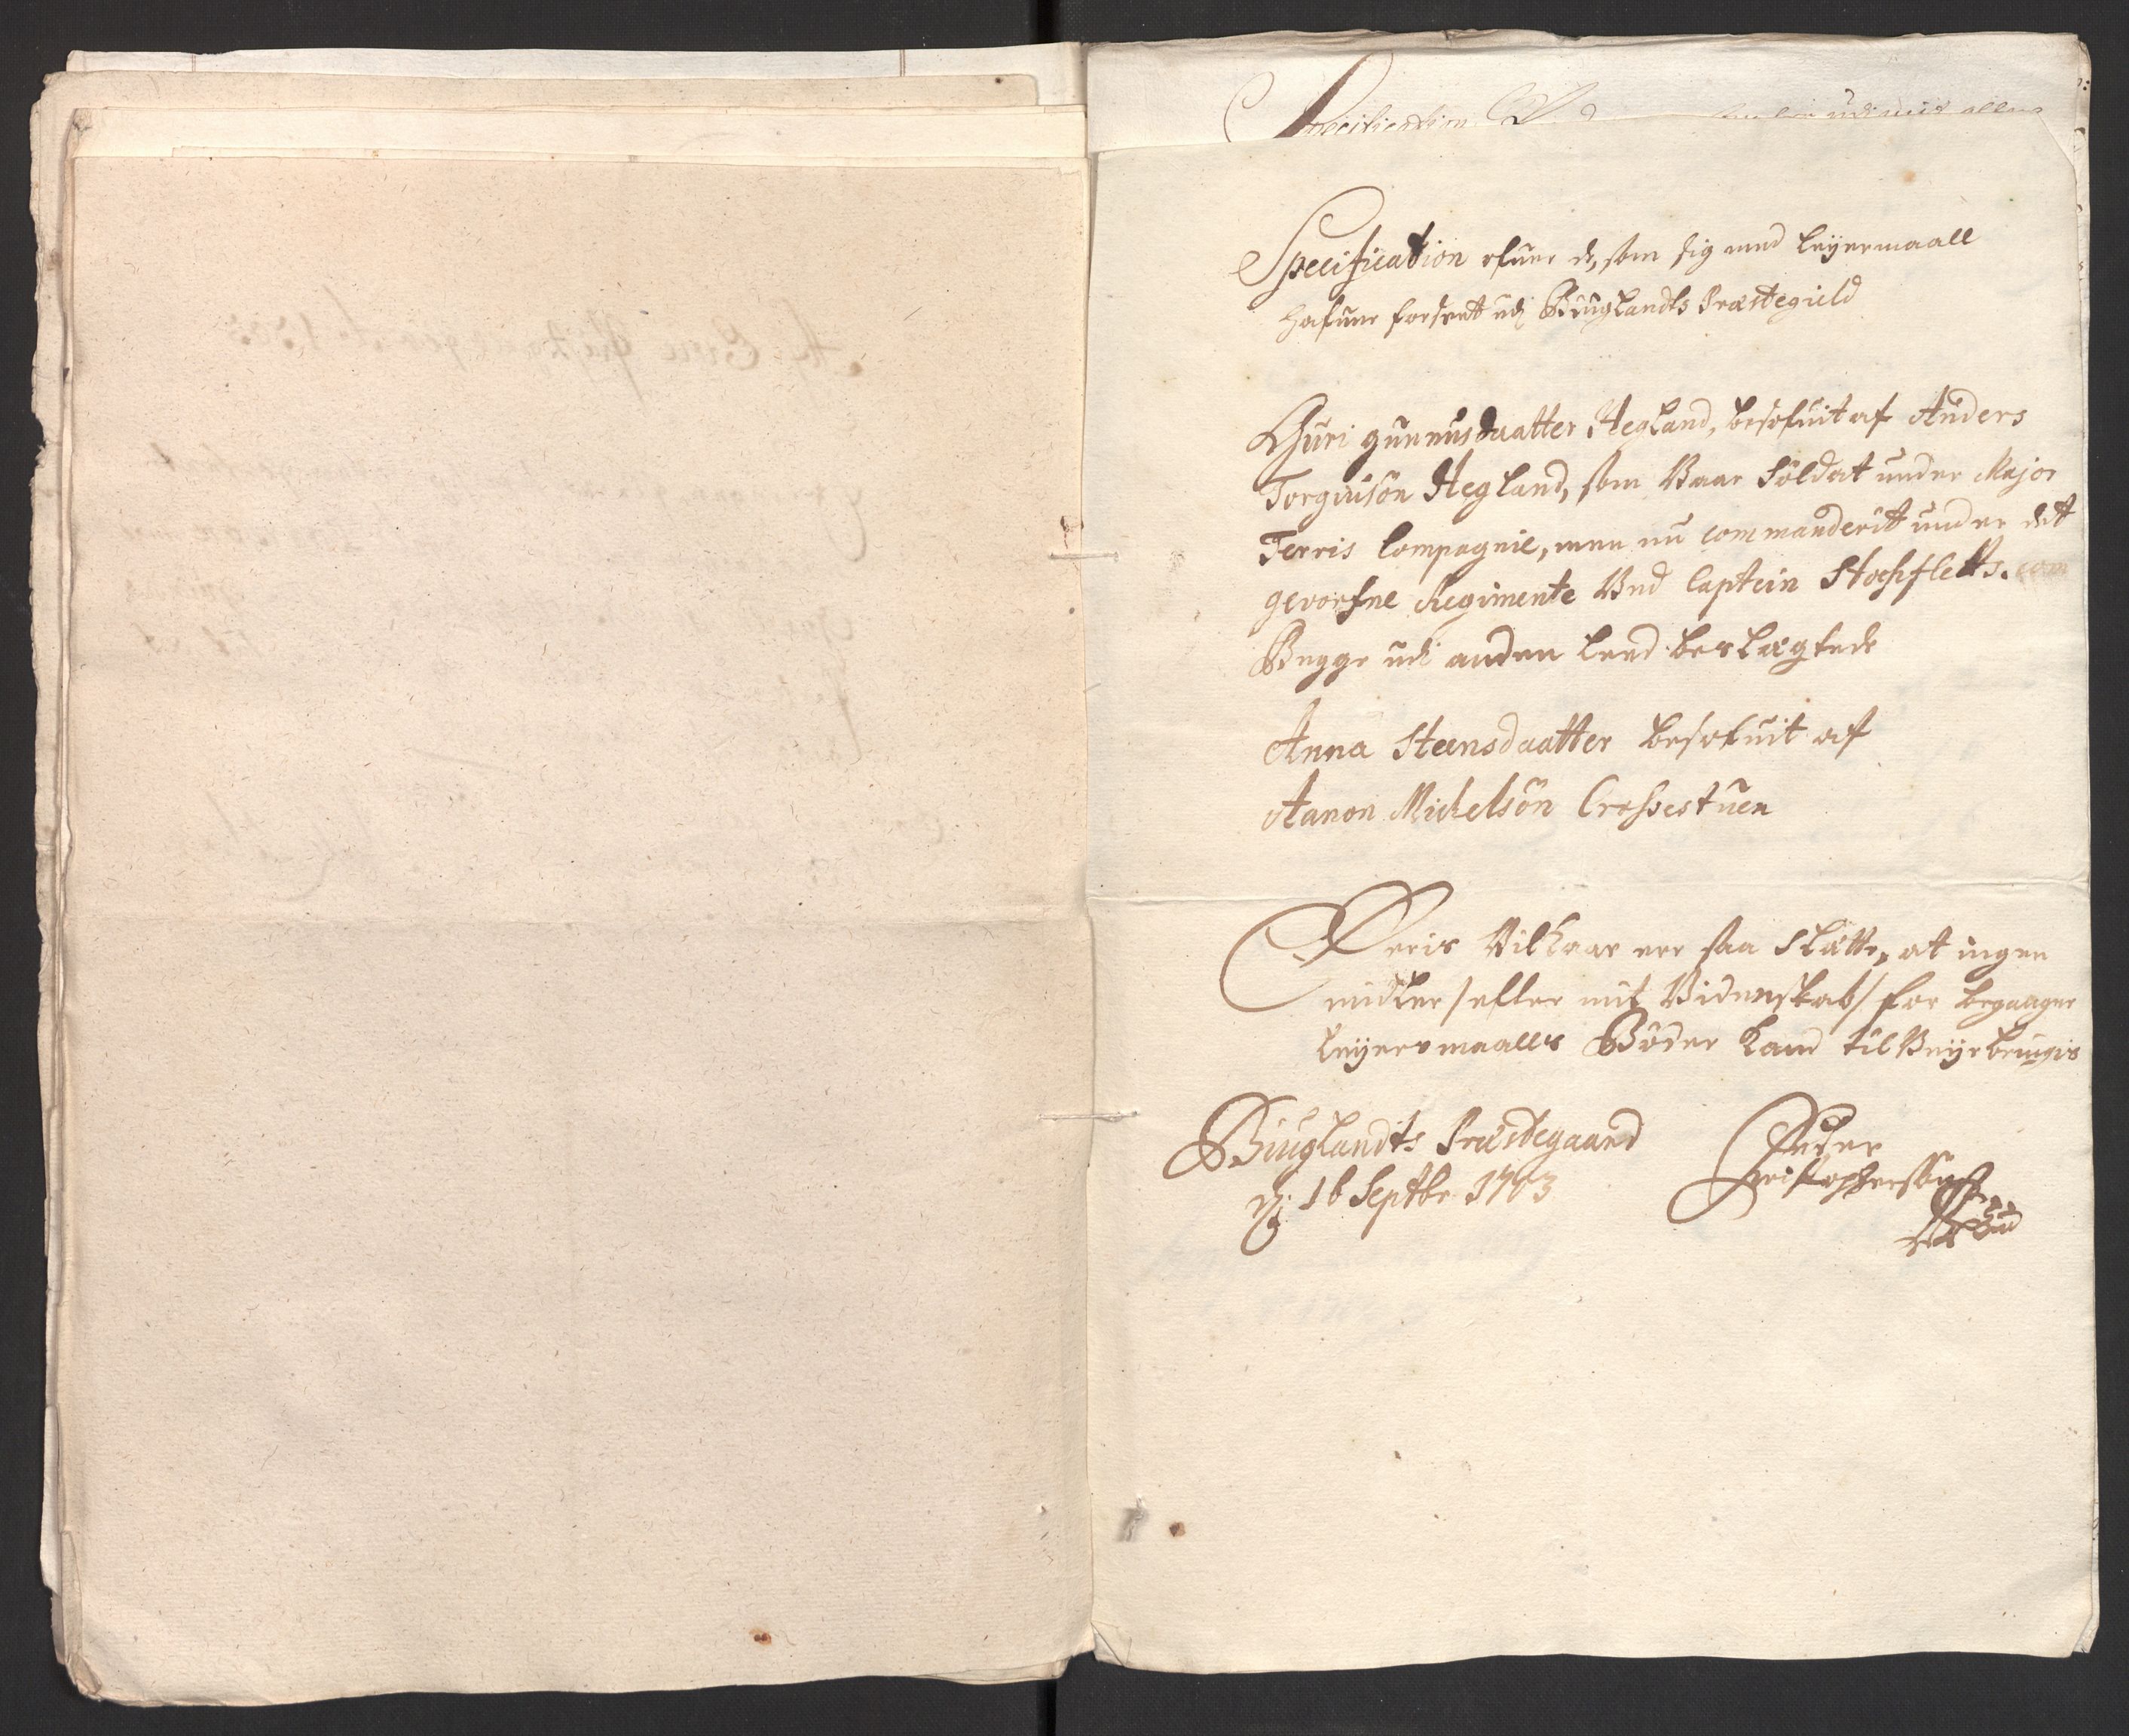 Specification
Specification ofuer de, som sig med leÿermaall
hafuer forseett udj Biuglandts Præstegield
Guri gunnusdaatter Hegland, besofuit af Anders
Torguisön Hegland, som Vaar Soldat under Major
Ferris Compagnie, men nu commanderit under dett
gevorfne Regimente Vnd Captein Stochfletts. com
Begge udi anden Leed beslægtede
Anna Steensdaatter besofuit af
Aanon Michelsön Crossestuen
Deris Vilkaar ere saa Slætte, at ingen
midler /efter mit Videnskab/ for begaagne
leÿermaalls Böder kand til Veÿe bringis
Biuglandts Præstegaard
dj 16 Septbr 1703
Peder
Christophersen